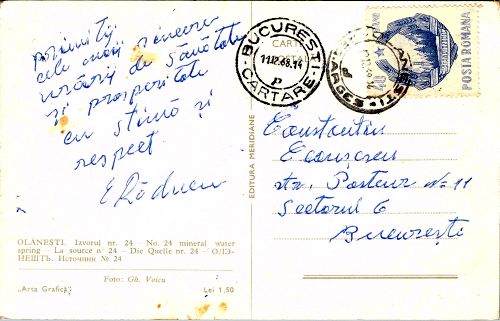 primiți
cele mai sincere
urări de sănătate
și prosperitate
cu stimă și
respect
OLĂNEȘTI. Izvorul nr. 24 — No. 24 mineral water
spring — La source n° 24 — Die Quelle nr. 24 — ОЛЭ-
НЕШТЬ. Источник № 24
Foto: Gh. Voicu
„Arta Grafică”
Lei 1,50
EDITURA MERIDIANE
CARTĂ
BUCUREȘTI
11.12.68.14
CARTARE
POSTA ROMANA
Constantin
str. Pasteur No 11
Sectorul 6
București